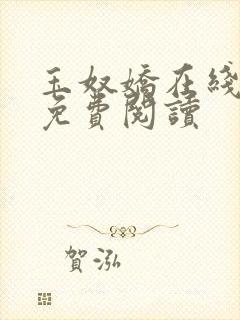 玉奴嬌在綫
免費閱讀
賀泓